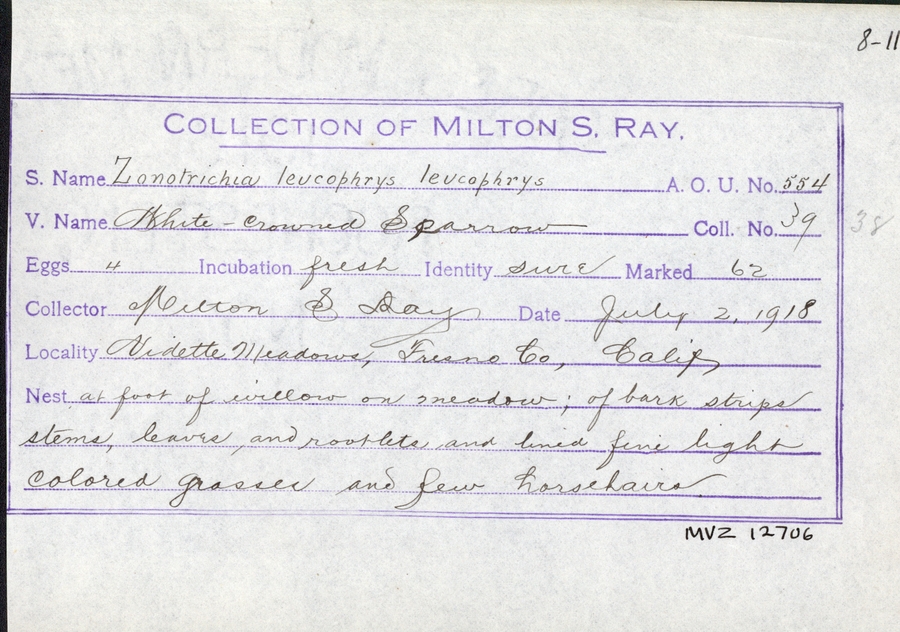 8-11
COLLECTION OF MILTON S. RAY.
S. Name Zonotrichia leucophrys leucophrys A. O. U. No. 554
V. Name White-crowned Sparrow Coll. No. 39 38
Eggs 4 Incubation fresh Identity sure Marked 62
Collector Milton S Ray Date July 2, 1918
Locality Vidette Meadows, Fresno Co, Calif,
Nest at foot of willow on meadow; of bark strips
stems, leaves and rootlets and lined fine light
colored grasses and few horsehairs
MVZ 12706